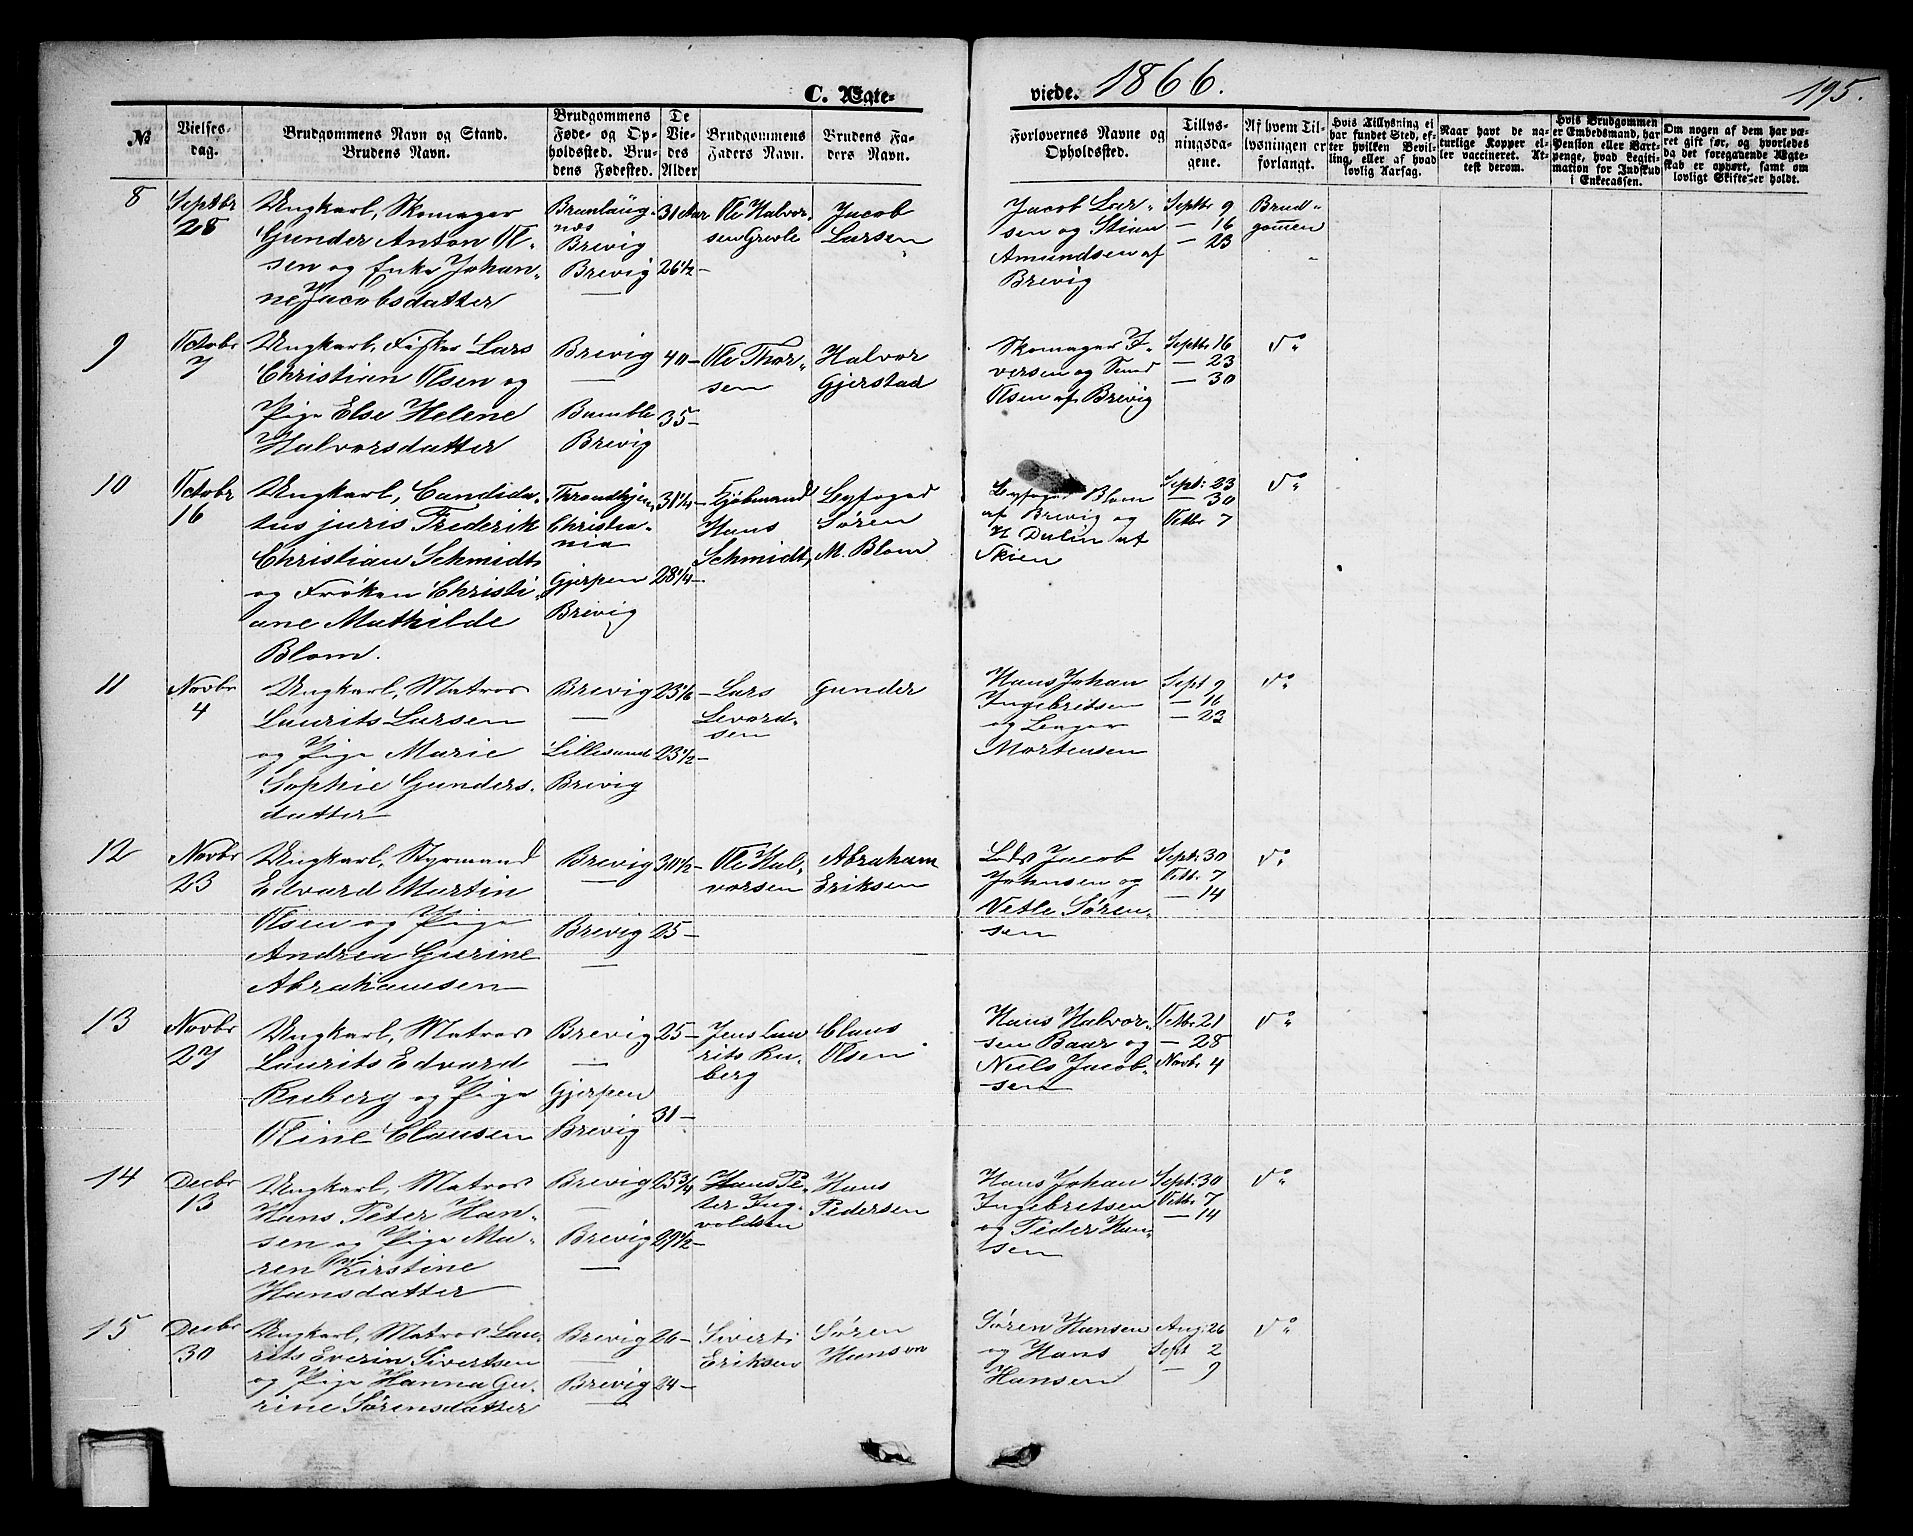 C. Ægte-
viede. 1866.
195.
№
Vielses-
dag.
Brudgommens Navn og Stand.
Brudens Navn.
Brudgommens
Føde- og Op-
holdssted. Bru-
dens Fødested.
De
Vie-
des
Alder
Brudgommens
Faders Navn.
Brudens Fa-
ders Navn.
Forlovernes Navne og
Opholdssted.
Tillys-
ningsda-
gene.
Af hvem Til-
lysningen er
forlangt.
Hvis Tillysning ei
har fundet Sted, ef-
ter hvilken Bevil-
ling, eller af hvad
lovlig Aarsag.
Naar havt de na-
turlige Kopper el-
ler vaccineret. At-
test derom.
Hvis Brudgommen
er Embedsmand, har
Pension eller Vart-
penge, hvad Legiti-
mation for Indskud
i Enkecassen.
Om nogen af dem har væ-
ret gift før, og hvorledes
da det foregaaende Ægte-
skab er ophørt, samt om
lovligt Skifte er holdt.
8
Septbr
28
Ungkarl, Skomager
Gunder Anton Ol-
sen og Enke Johan-
ne Jacobsdatter
Brunlaug-
næs
Brevig
Brevig
31 Aar
26½
Ole Halvor-
sen Grevle
Jacob
Larsen
Jacob Lar-
sen og Stian
Amundsen af
Brevig
Septbr 9
— 16
— 23
Brud-
gommen
9
Octobr
7
Ungkarl, Fisker Lars
Christian Olsen og
Pige Else Helene
Halvorsdatter
Brevig
—
Bamble
Brevig
40 —
35 —
Ole Thor-
sen
Halvor
Gjerstad
Skomager I-
versen og
Olsen af Brevig
Septbr 16
— 23
— 30
Do
10
Octobr
16
Ungkarl, Candida-
tus juris Frederik
Christian Schmidt
og Frøken Christi-
ane Mathilde
Blom.
Throndhjem
Christia-
nia
Gjerpen
Brevig
31¼ —
28¼ —
Kjøbmand
Hans
Schmidt,
Byfoged
Søren
M. Blom
Byfoged Blom
af Brevig og
H Dulin af
Skien
Sept: 23
— 30
Octbr 7
Do
11
Novbr
4
Ungkarl, Matros
Laurits Larsen
og Pige Marie
Sophie Gunders-
datter
Brevig
—
Lillesand
Brevig
23⅙ —
23½ —
Lars
Levord-
sen
Gunder
Hans Johan
Ingebretsen
og
Mortensen
Sept 9
— 16
— 23
Do
12
Novbr
23
Ungkarl, Styrmand
Edvard Martin
Olsen og Pige
Andrea Gurine
Abrahamsen
Brevig
—
Brevig
—
30½ —
25 —
Ole Hal-
vorsen
Abraham
Eriksen
Lds Jacob
Johnsen og
Vetle Søren-
sen
Sept: 30
Octb. 7
— 14
Do
13
Novbr
27
Ungkarl, Matros
Laurits Edvard
Ruberg og Pige
Oline Clausen
Brevig
—
Gjerpen
Brevig
25 —
31 —
Jens Lau-
rits Ru-
berg
Claus
Olsen
Hans Halvor-
sen Baar og
Niels Jacob-
sen
Octbr 21
— 28
Novbr 4
Do
14
Decbr
13
Ungkarl, Matros
Hans Peter Han-
sen og Pige Ma-
ren Kirstine
Hansdatter
Brevig
—
Brevig
—
25¾
29½ —
Hans Pe-
ter Ing-
voldsen
Hans
Pedersen
Hans Johan
Ingebretsen
og Peder Han-
sen
Sept: 30
Octbr 7
— 14
Do
15
Decbr
30
Ungkarl, Matros Lau-
rits Everin Sivertsen
og Pige Hanna Gu-
rine Sørensdatter
Brevig
—
Brevig
—
26 —
24 —
Sivert
Eriksen
Søren
Hansen
Søren Hansen
og Hans
Hansen
Aug: 26
Sept 2
— 9
Do